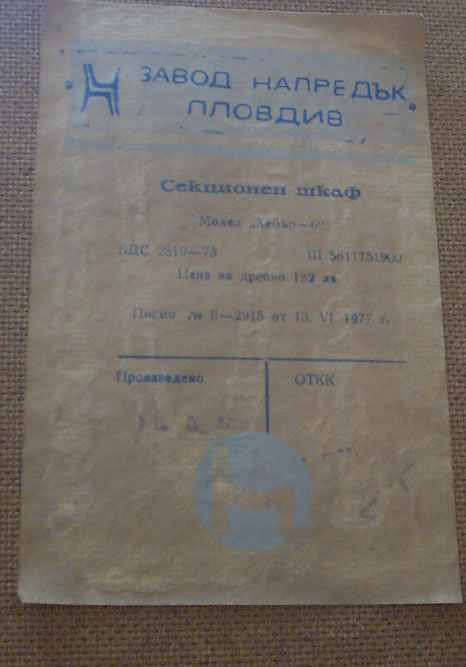 ЗАВОД НАПРЕДЪК
ПЛОВДИВ
Секционен шкаф
Модел „Хебър—6“
БДС 2819—73 Ш 5611751900
Цена на дребно 182 лв.
Писмо № II—2915 от 13. VI. 1977 г.
Произведено ОТКК